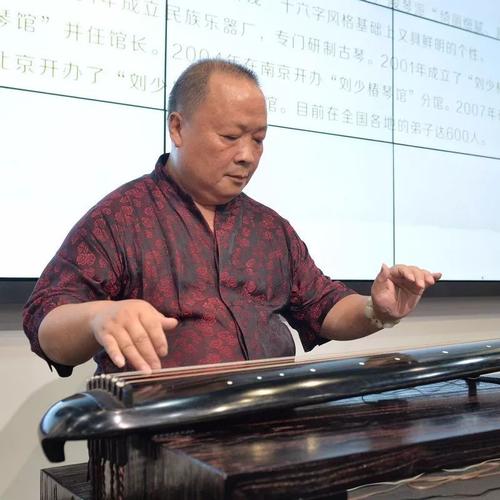 琴派“绮
十六字风格基础上又具鲜明的个性。
年成立民族乐器厂，专门研制古琴。2001年成立了“刘少椿
琴馆”并任馆长。2004年在南京开办“刘少椿琴馆”分馆。2007年
北京开办了“刘少 馆。目前在全国各地的弟子达600人。